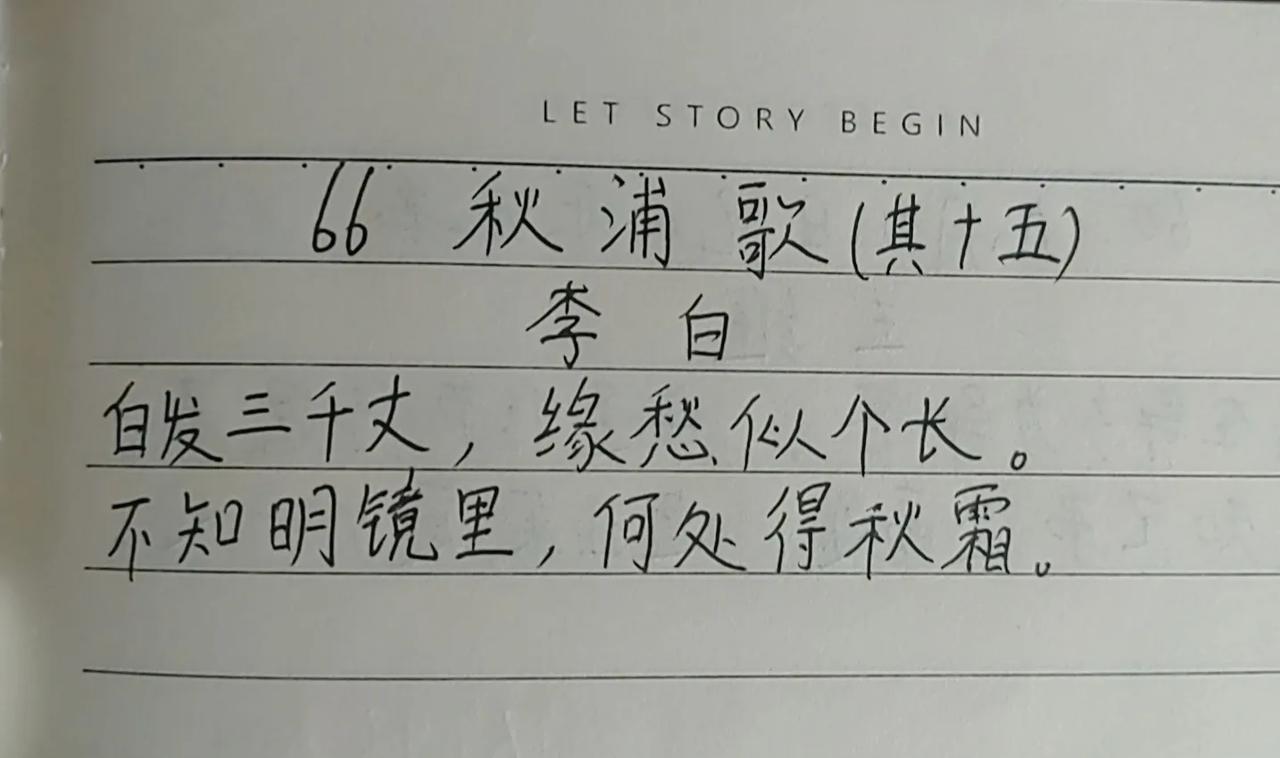 LET STORY BEGIN
66 秋浦歌(其十五)
李白
白发三千丈，缘愁似个长。
不知明镜里，何处得秋霜。